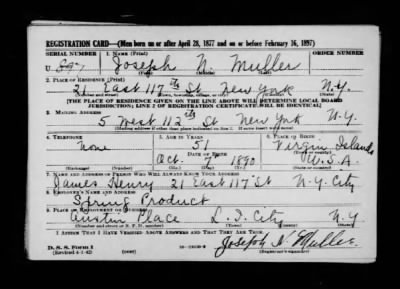 REGISTRATION CARD—(Men born on or after April 28, 1877 and on or before February 16, 1897)
SERIAL NUMBER 1. NAME (Print) ORDER NUMBER
U Joseph N. Muller
(First) (Middle) (Last)
2. PLACE OF RESIDENCE (Print)
21 East 117th St New York N.Y.
[THE PLACE OF RESIDENCE GIVEN ON THE LINE ABOVE WILL DETERMINE LOCAL BOARD
JURISDICTION; LINE 2 OF REGISTRATION CERTIFICATE WILL BE IDENTICAL]
3. MAILING ADDRESS
5 West 112th St New York N.Y.
[Mailing address if other than place indicated on line 2. If same insert word same]
4. TELEPHONE 5. AGE IN YEARS 6. PLACE OF BIRTH
None 51 Virgin Islands
DATE OF BIRTH
Oct. 7th 1890 U.S.A.
(Exchange) (Number) (Mo.) (Day) (Yr.) (State or country)
7. NAME AND ADDRESS OF PERSON WHO WILL ALWAYS KNOW YOUR ADDRESS
James Henry 21 East 117 St N.Y. City
8. EMPLOYER'S NAME AND ADDRESS
Spring Product
9. PLACE OF EMPLOYMENT OR BUSINESS
Austin Place L.I. City N.Y
(Number and street or R. F. D. number) (Town) (County) (State)
I AFFIRM THAT I HAVE VERIFIED ABOVE ANSWERS AND THAT THEY ARE TRUE.
D. S. S. Form 1
(Revised 4-1-42) (over)
Joseph N. Muller
(Registrant's signature)